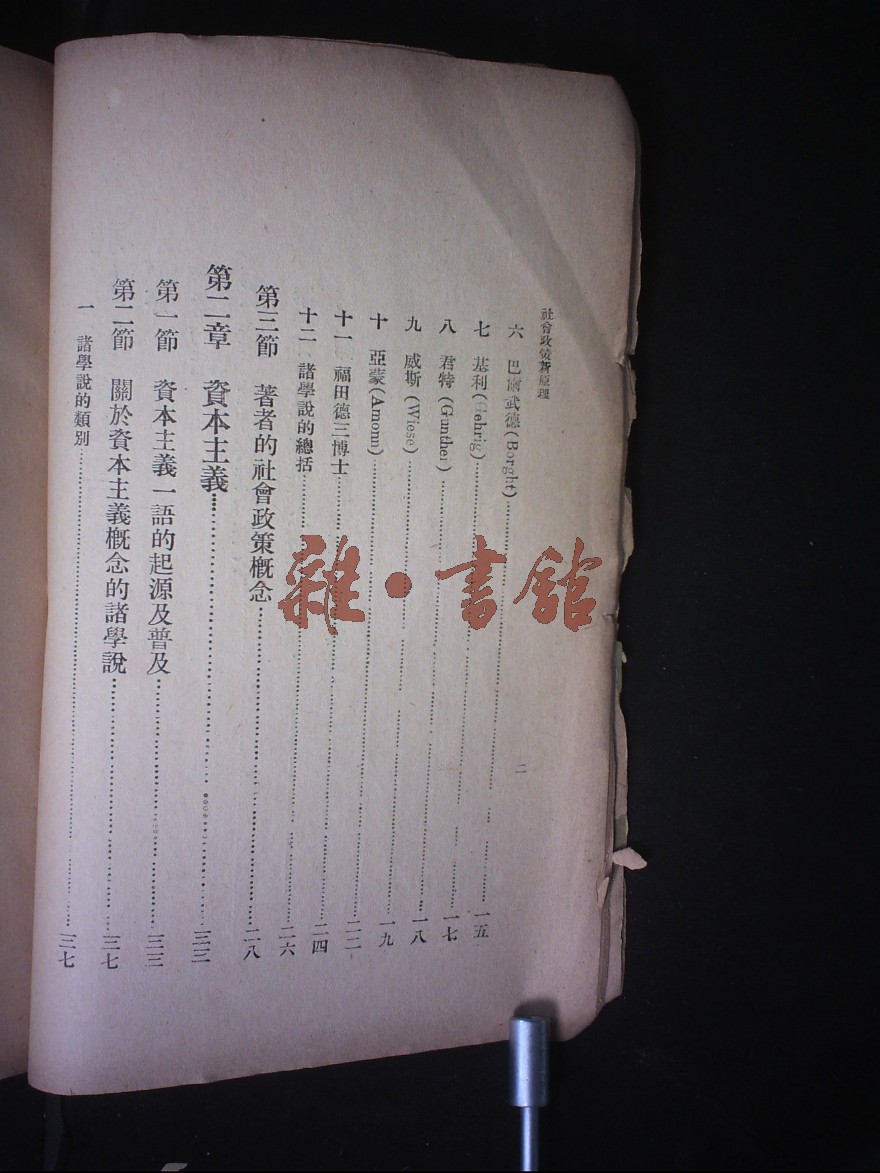 社會政策新原理
二
六 巴爾武德(Borght)……一五
七 基利(Gehrig)……一七
八 君特(Gunther)……一八
九 威斯(Wiese)……一九
十 亞蒙(Amonn)……二二
十一 福田德三博士……二四
十二 諸學說的總括……二六
第三節 著者的社會政策概念……二八
第二章 資本主義……三三
第一節 資本主義一語的起源及普及……三三
第二節 關於資本主義概念的諸學說……三七
一 諸學說的類別……三七
雜·書館